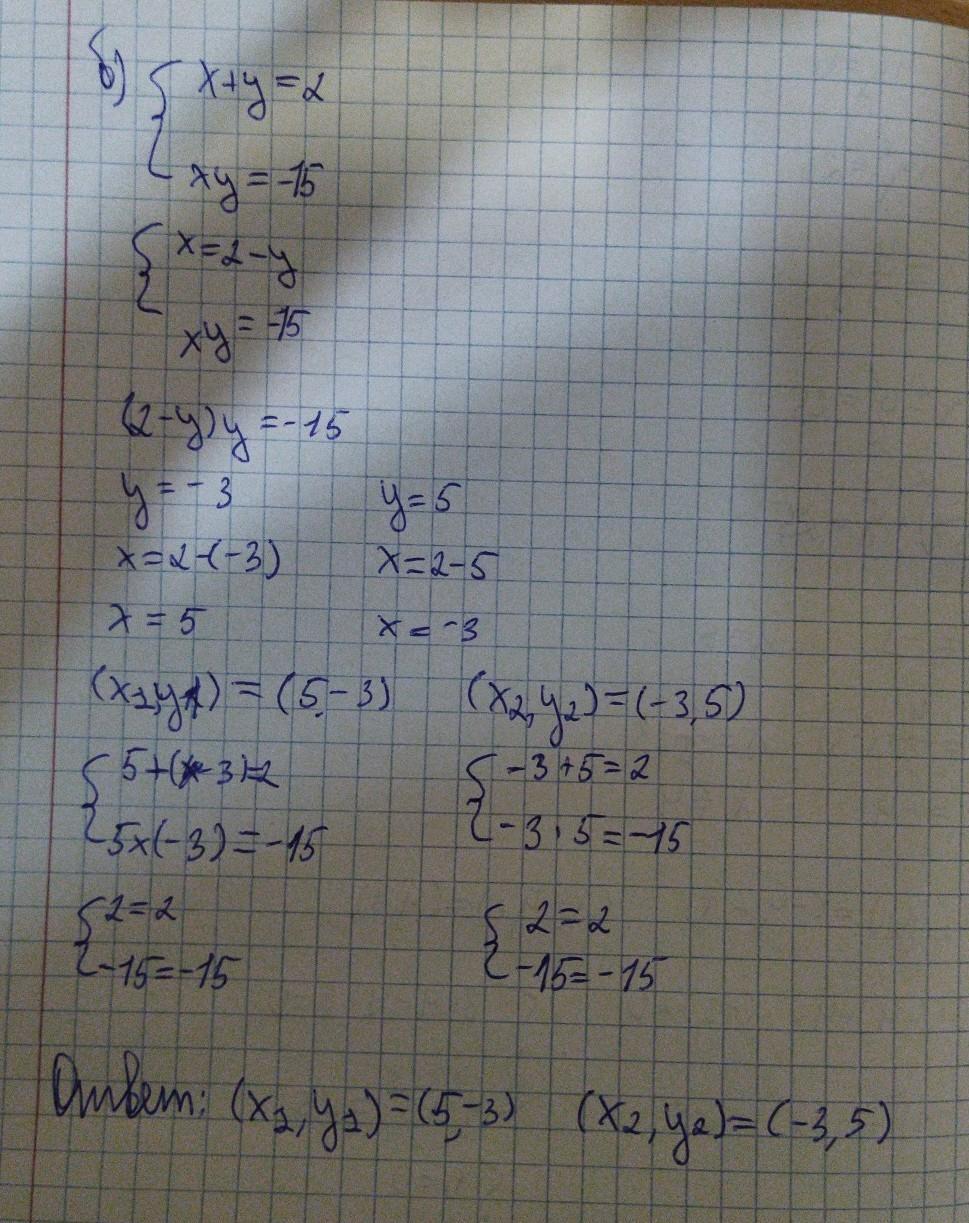 б) { x+y=2
xy=-15
{ x=2-y
xy=-15
(2-y)y=-15
y=-3 y=5
x=2-(-3) x=2-5
x=5 x=-3
(x1,y1)=(5,-3) (x2,y2)=(-3,5)
{ 5+(-3)=2 { -3+5=2
5x(-3)=-15 -3·5=-15
{ 2=2 { 2=2
-15=-15 -15=-15
Ответ: (x1,y1)=(5,-3) (x2,y2)=(-3,5)